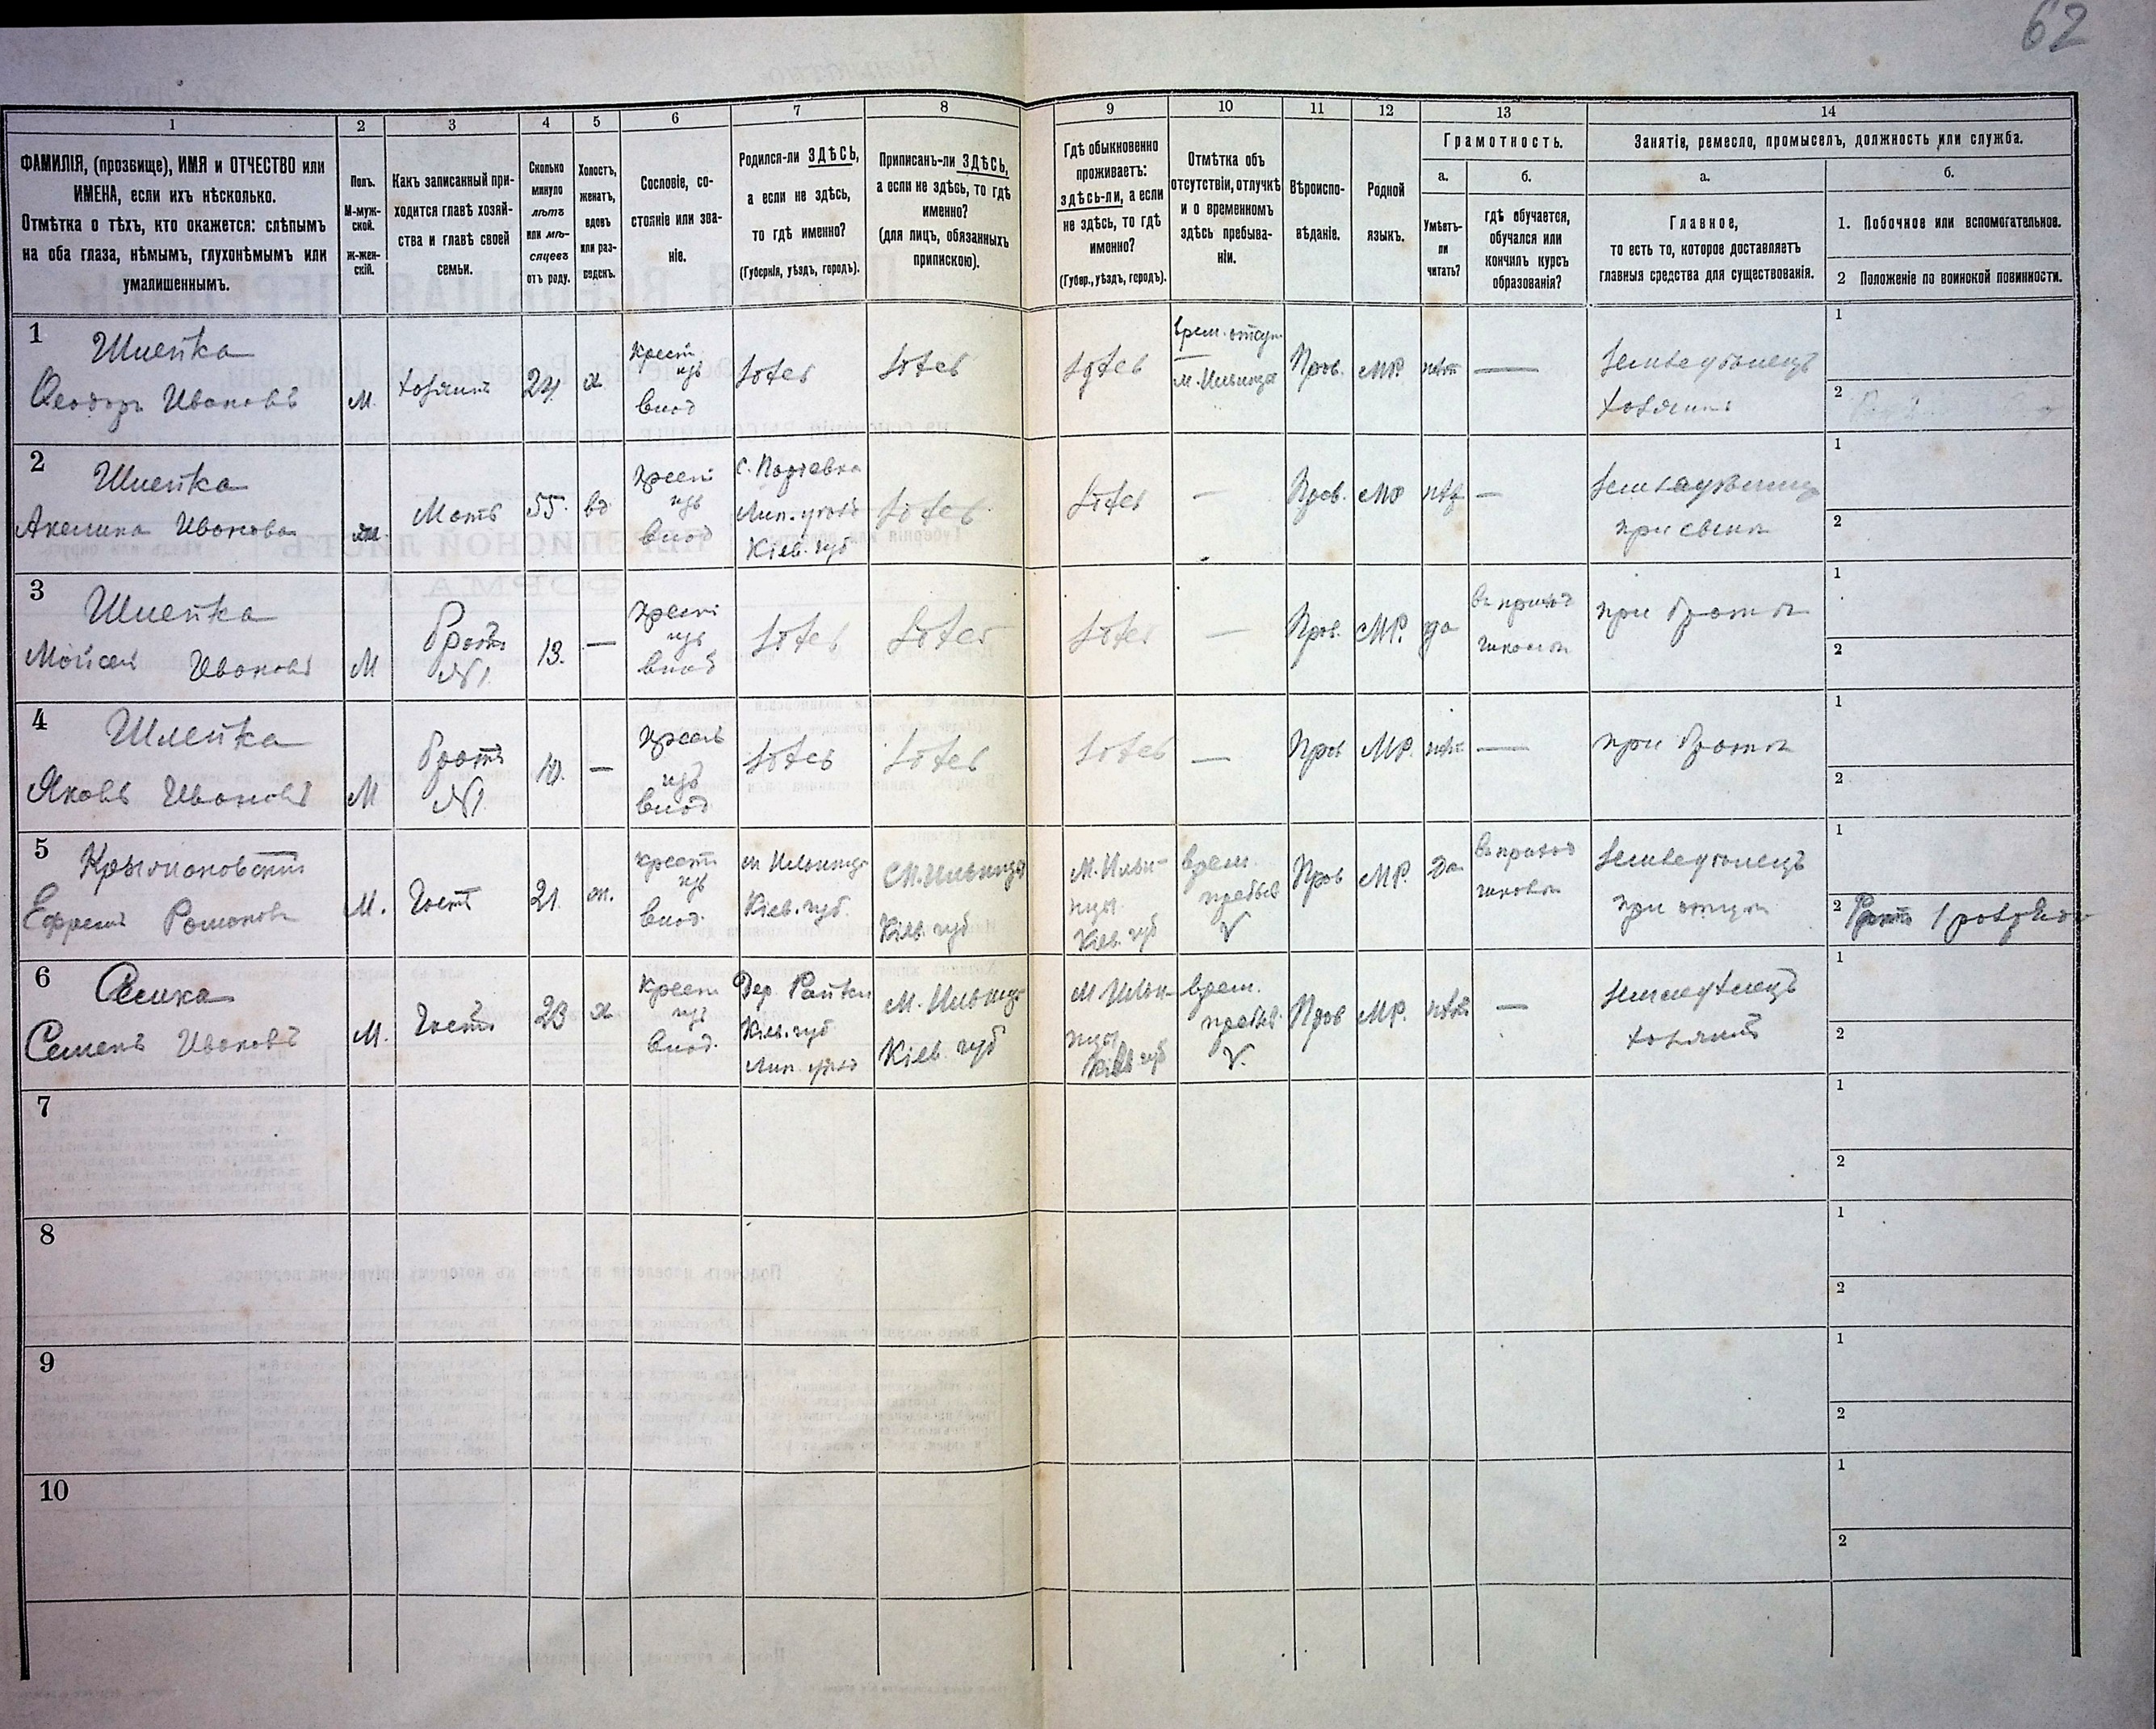 62
1 2 3 4 5 6 7 8 9 10 11 12 13 14
ФАМИЛІЯ, (прозвище), ИМЯ и ОТЧЕСТВО или
ИМЕНА, если ихъ нѣсколько.
Отмѣтка о тѣхъ, кто окажется: слѣпымъ
на оба глаза, нѣмымъ, глухонѣмымъ или
умалишеннымъ.
Полъ.
М-муж-
ской.
Ж-жен-
скій.
Какъ записанный при-
ходится главѣ хозяй-
ства и главѣ своей
семьи.
Сколько
минуло
лѣтъ
или мѣ-
сяцевъ
отъ роду.
Холостъ,
женатъ,
вдовъ
или раз-
веденъ.
Сословіе, со-
стояніе или зва-
ніе.
Родился-ли ЗДѢСЬ,
а если не здѣсь,
то гдѣ именно?
(Губернія, уѣздъ, городъ).
Приписанъ-ли ЗДѢСЬ,
а если не здѣсь, то гдѣ
именно?
(для лицъ, обязанныхъ
припискою).
Гдѣ обыкновенно
проживаетъ:
здѣсь-ли, а если
не здѣсь, то гдѣ
именно?
(Губер., уѣздъ, городъ).
Отмѣтка объ
отсутствіи, отлучкѣ
и о временномъ
здѣсь пребыва-
ніи.
Вѣроиспо-
вѣданіе.
Родной
языкъ.
Грамотность.
а.
Умѣетъ-
ли
читать?
б.
гдѣ обучается,
обучался или
кончилъ курсъ
образованія?
Занятіе, ремесло, промыселъ, должность или служба.
а.
Главное,
то есть то, которое доставляетъ
главныя средства для существованія.
б.
1. Побочное или вспомогательное.
2 Положеніе по воинской повинности.
1
Шлейка
Феодоръ Ивановъ
М.
хозяинъ
24
х
крест
изъ
влад
здесь
здесь
здесь
врем. отсут
м. Ильинцы
Прав.
МР.
нѣт
—
земледѣлецъ
хозяинъ
1
2
2
Шлейка
Акелина Иванова
Мать
55.
вд
крест
изъ
влад
Лип. уѣзд
Кіев. губ
здесь
здесь
—
Прав.
МР
нѣт
—
при сынѣ
1
2
3
Шлейка
Мойсей Ивановъ
М
братъ
№1.
13.
—
крест
изъ
влад
здесь
здесь
здесь
—
Прав.
МР.
да
въ приход
школѣ
при братѣ
1
2
4
Шлейка
Яковъ Ивановъ
М
братъ
№1.
10.
—
крест
изъ
влад
здесь
здесь
здесь
—
Прав
МР.
нѣт
—
при братѣ
1
2
5
Ефремъ Романовъ
М.
Гость
21.
крест
изъ
влад.
м Ильинцы
Кіев. губ.
М. Ильинцы
Кіев. губ
М. Ильин-
цы
Кіев. губ
врем.
пребыв
Прав
МР.
да
въ приход
школѣ
земледѣлецъ
при отцѣ
1
2
6
Семенъ Ивановъ
М.
Гость
23
х
крест
изъ
влад.
Дер. Райки
Кіев. губ
Лип. уѣзд
М. Ильинцы
Кіев. губ
М Ильин-
цы
Кіев губ
врем.
пребыв.
Прав
МР.
нѣт
—
земледѣлецъ
хозяинъ
1
2
7
1
2
8
1
2
9
1
2
10
1
2